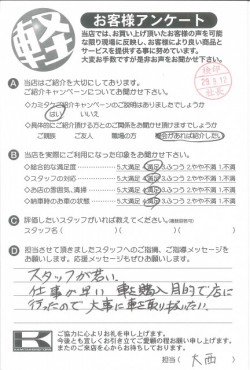 軽
お客様アンケート
当店では、お買い上げ頂いたお客様の声を可能
な限り現場に反映し、お客様により良い商品と
サービスを提供する事に努めています。
大変お手数ですが是非お声をお聞かせ下さい。
Ⓐ 当店はご紹介を大切にしております。
ご紹介キャンペーンについてお聞かせ下さい。
◇カミタケご紹介キャンペーンのご説明はありましたでしょうか
はい いいえ
◇具体的にご紹介頂ける方とのご関係をお聞かせ頂けますでしょうか
ご親族 ご友人 職場の方 機会があれば紹介したい
Ⓑ 当店を実際にご利用になった印象をお聞かせ下さい。
◇総合的な満足度 5.大満足 4.満足 3.ふつう 2.やや不満 1.不満
◇スタッフの対応 5.大満足 4.満足 3.ふつう 2.やや不満 1.不満
◇お店の雰囲気、清掃 5.大満足 4.満足 3.ふつう 2.やや不満 1.不満
◇納車時のお車の状態 5.大満足 4.満足 3.ふつう 2.やや不満 1.不満
Ⓒ 評価したいスタッフがいれば教えてください。(複数回答可)
スタッフ名( )( )( )
Ⓓ 担当させて頂きましたスタッフへのご指摘、ご指導メッセージを
お願いします。応援メッセージもぜひお願いします。
スタッフが若い
仕事が早い 車を購入目的で店に
行ったので大事に車を取り扱いたい.
K
ご協力に心よりお礼を申し上げます。
今後とも宜しくお引き立てご愛顧の程お願い申し上げます。
またのご来店を心からお待ちしております。
担当( 大西 )